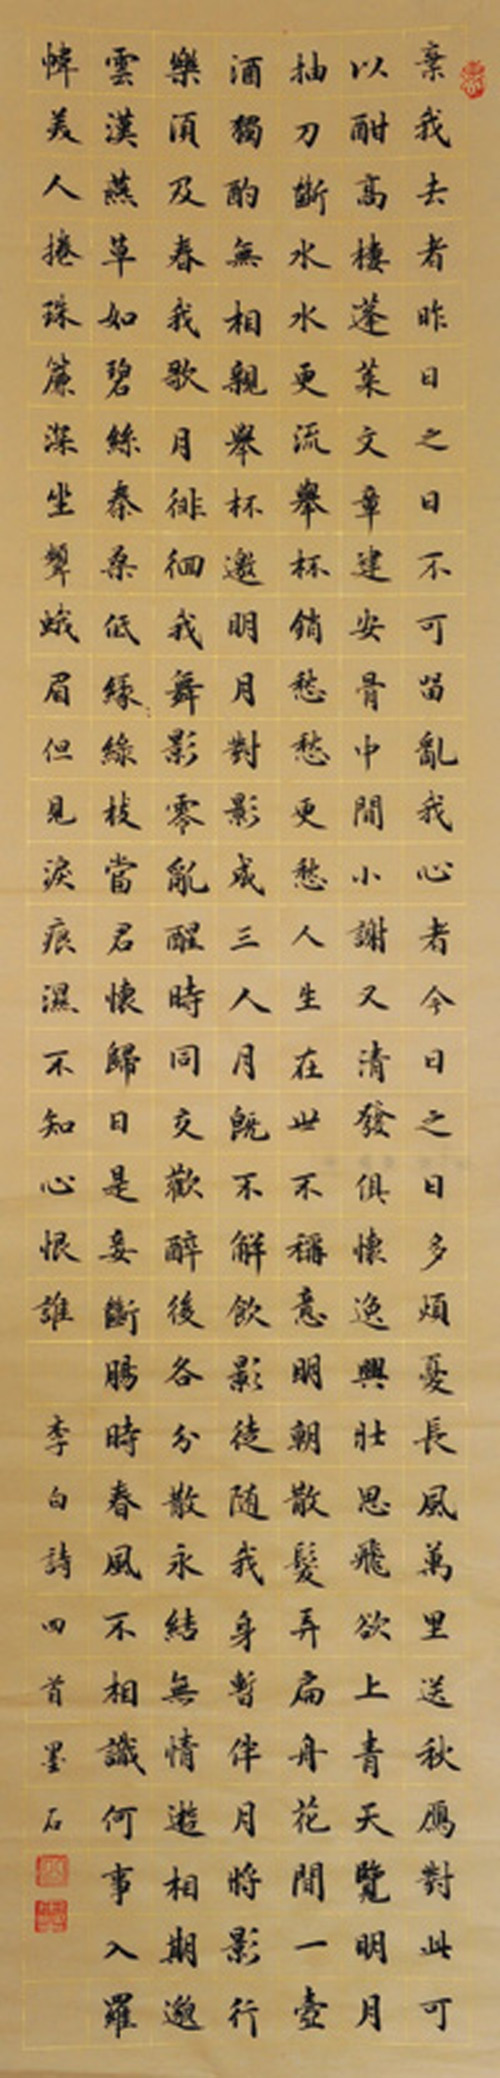 棄我去者昨日之日不可留亂我心者今日之日多煩憂長風萬里送秋鴈對此可
以酣高樓蓬萊文章建安骨中間小謝又清發俱懷逸興壯思飛欲上青天覽明月
抽刀斷水水更流舉杯銷愁愁更愁人生在世不稱意明朝散髮弄扁舟花間一壺
酒獨酌無相親舉杯邀明月對影成三人月既不解飲影徒隨我身暫伴月將影行
樂須及春我歌月徘徊我舞影零亂醒時同交歡醉後各分散永結無情遊相期邈
雲漢燕草如碧絲秦桑低緣綠枝當君懷歸日是妾斷腸時春風不相識何事入羅
幃美人捲珠簾深坐顰蛾眉但見淚痕濕不知心恨誰 李白詩四首墨石